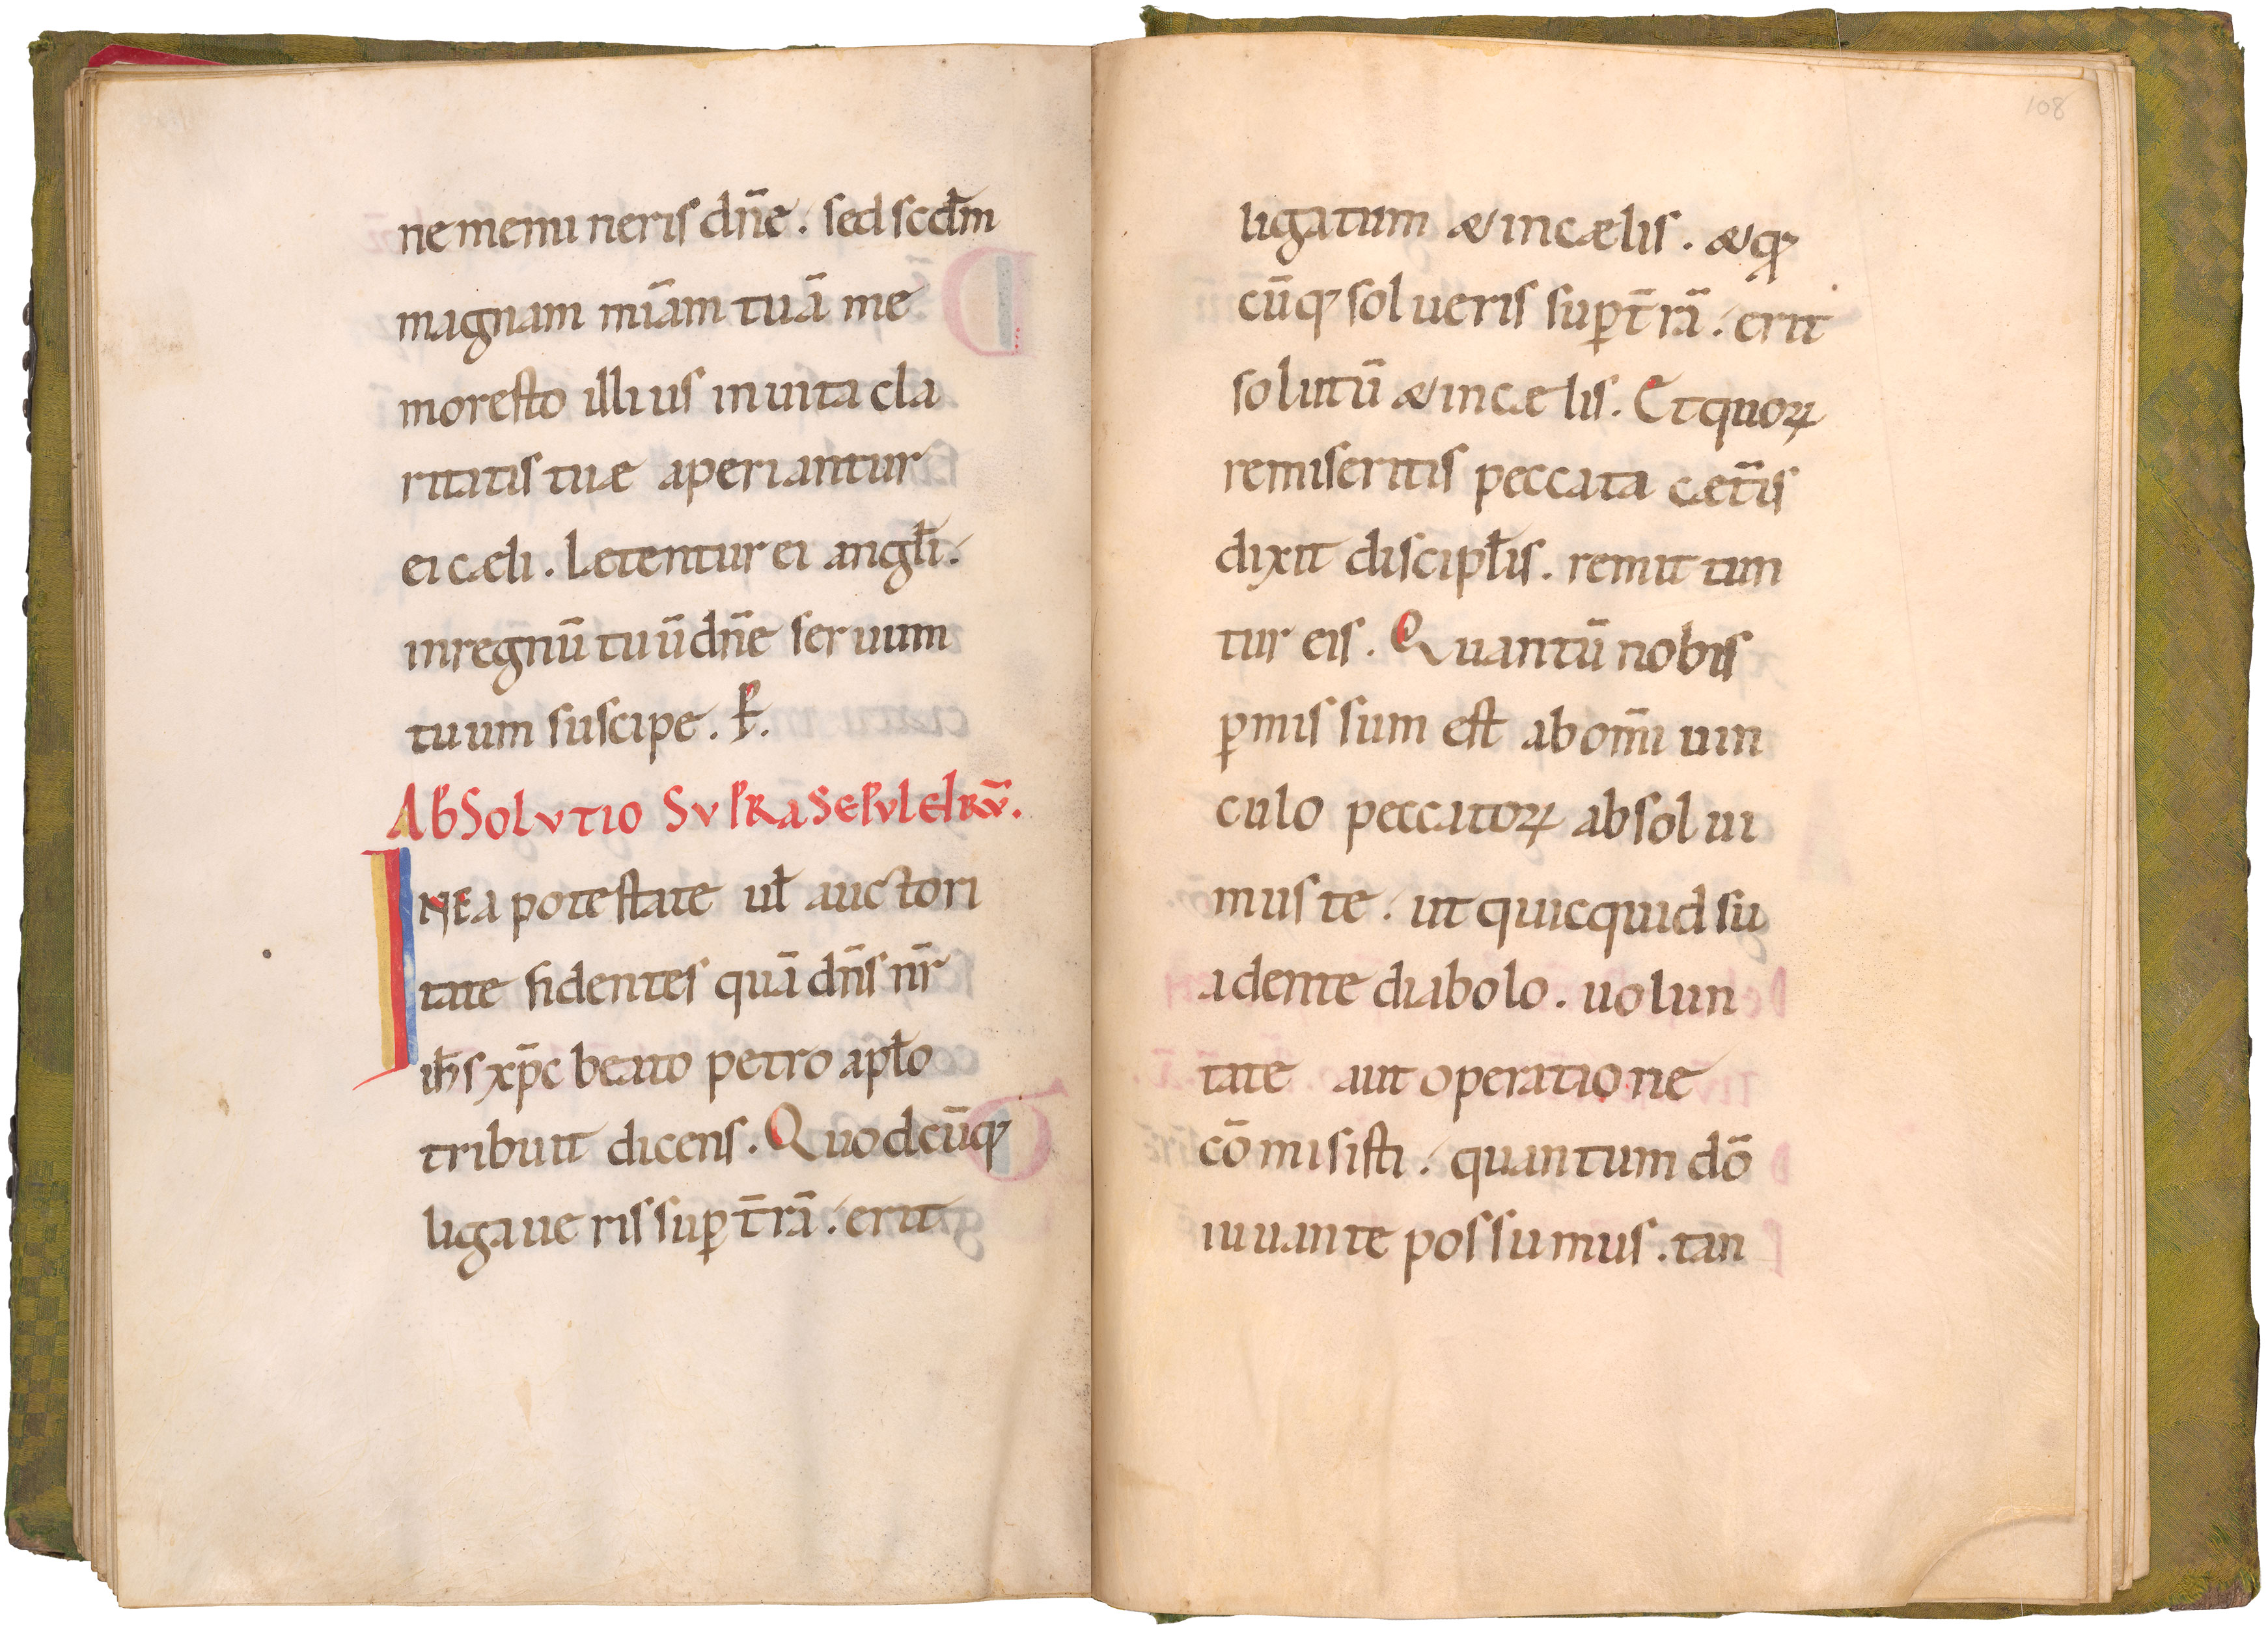 ne memineris dn̄e. sed scd̄m
magnam mīam tuā me
moresto illius in uita cla
ritatis tuæ aperiantur
ei cæli. Lætentur ei angl̄i.
in regnū tuū dn̄e seruum
tuum suscipe. k̄.
AbSolvtio Svpra Sepvlchrv̄.
INEa potestate ul̄ auctori
tate fidentes quā dn̄s nr̄
ih̄s xp̄c beato petro apl̄o
tribuit dicens. Quodcūq;
ligaueris sup̱ t̄rā. erit
108
ligatum & in cælis. & q̱
cūq; solueris sup̱ t̄rā. erit
solutū & in cælis. Et quoꝝ
remiseritis peccata cæt̄is
dixit discipl̄is. remittun
tur eis. Quantū nobis
ꝑmissum est ab om̄i uin
culo peccatoꝝ absolui
mus te. ut quicquid su
adente diabolo. uolun
tate aut operatione
cōmisisti. quantum dō
iuuante possumus. tan